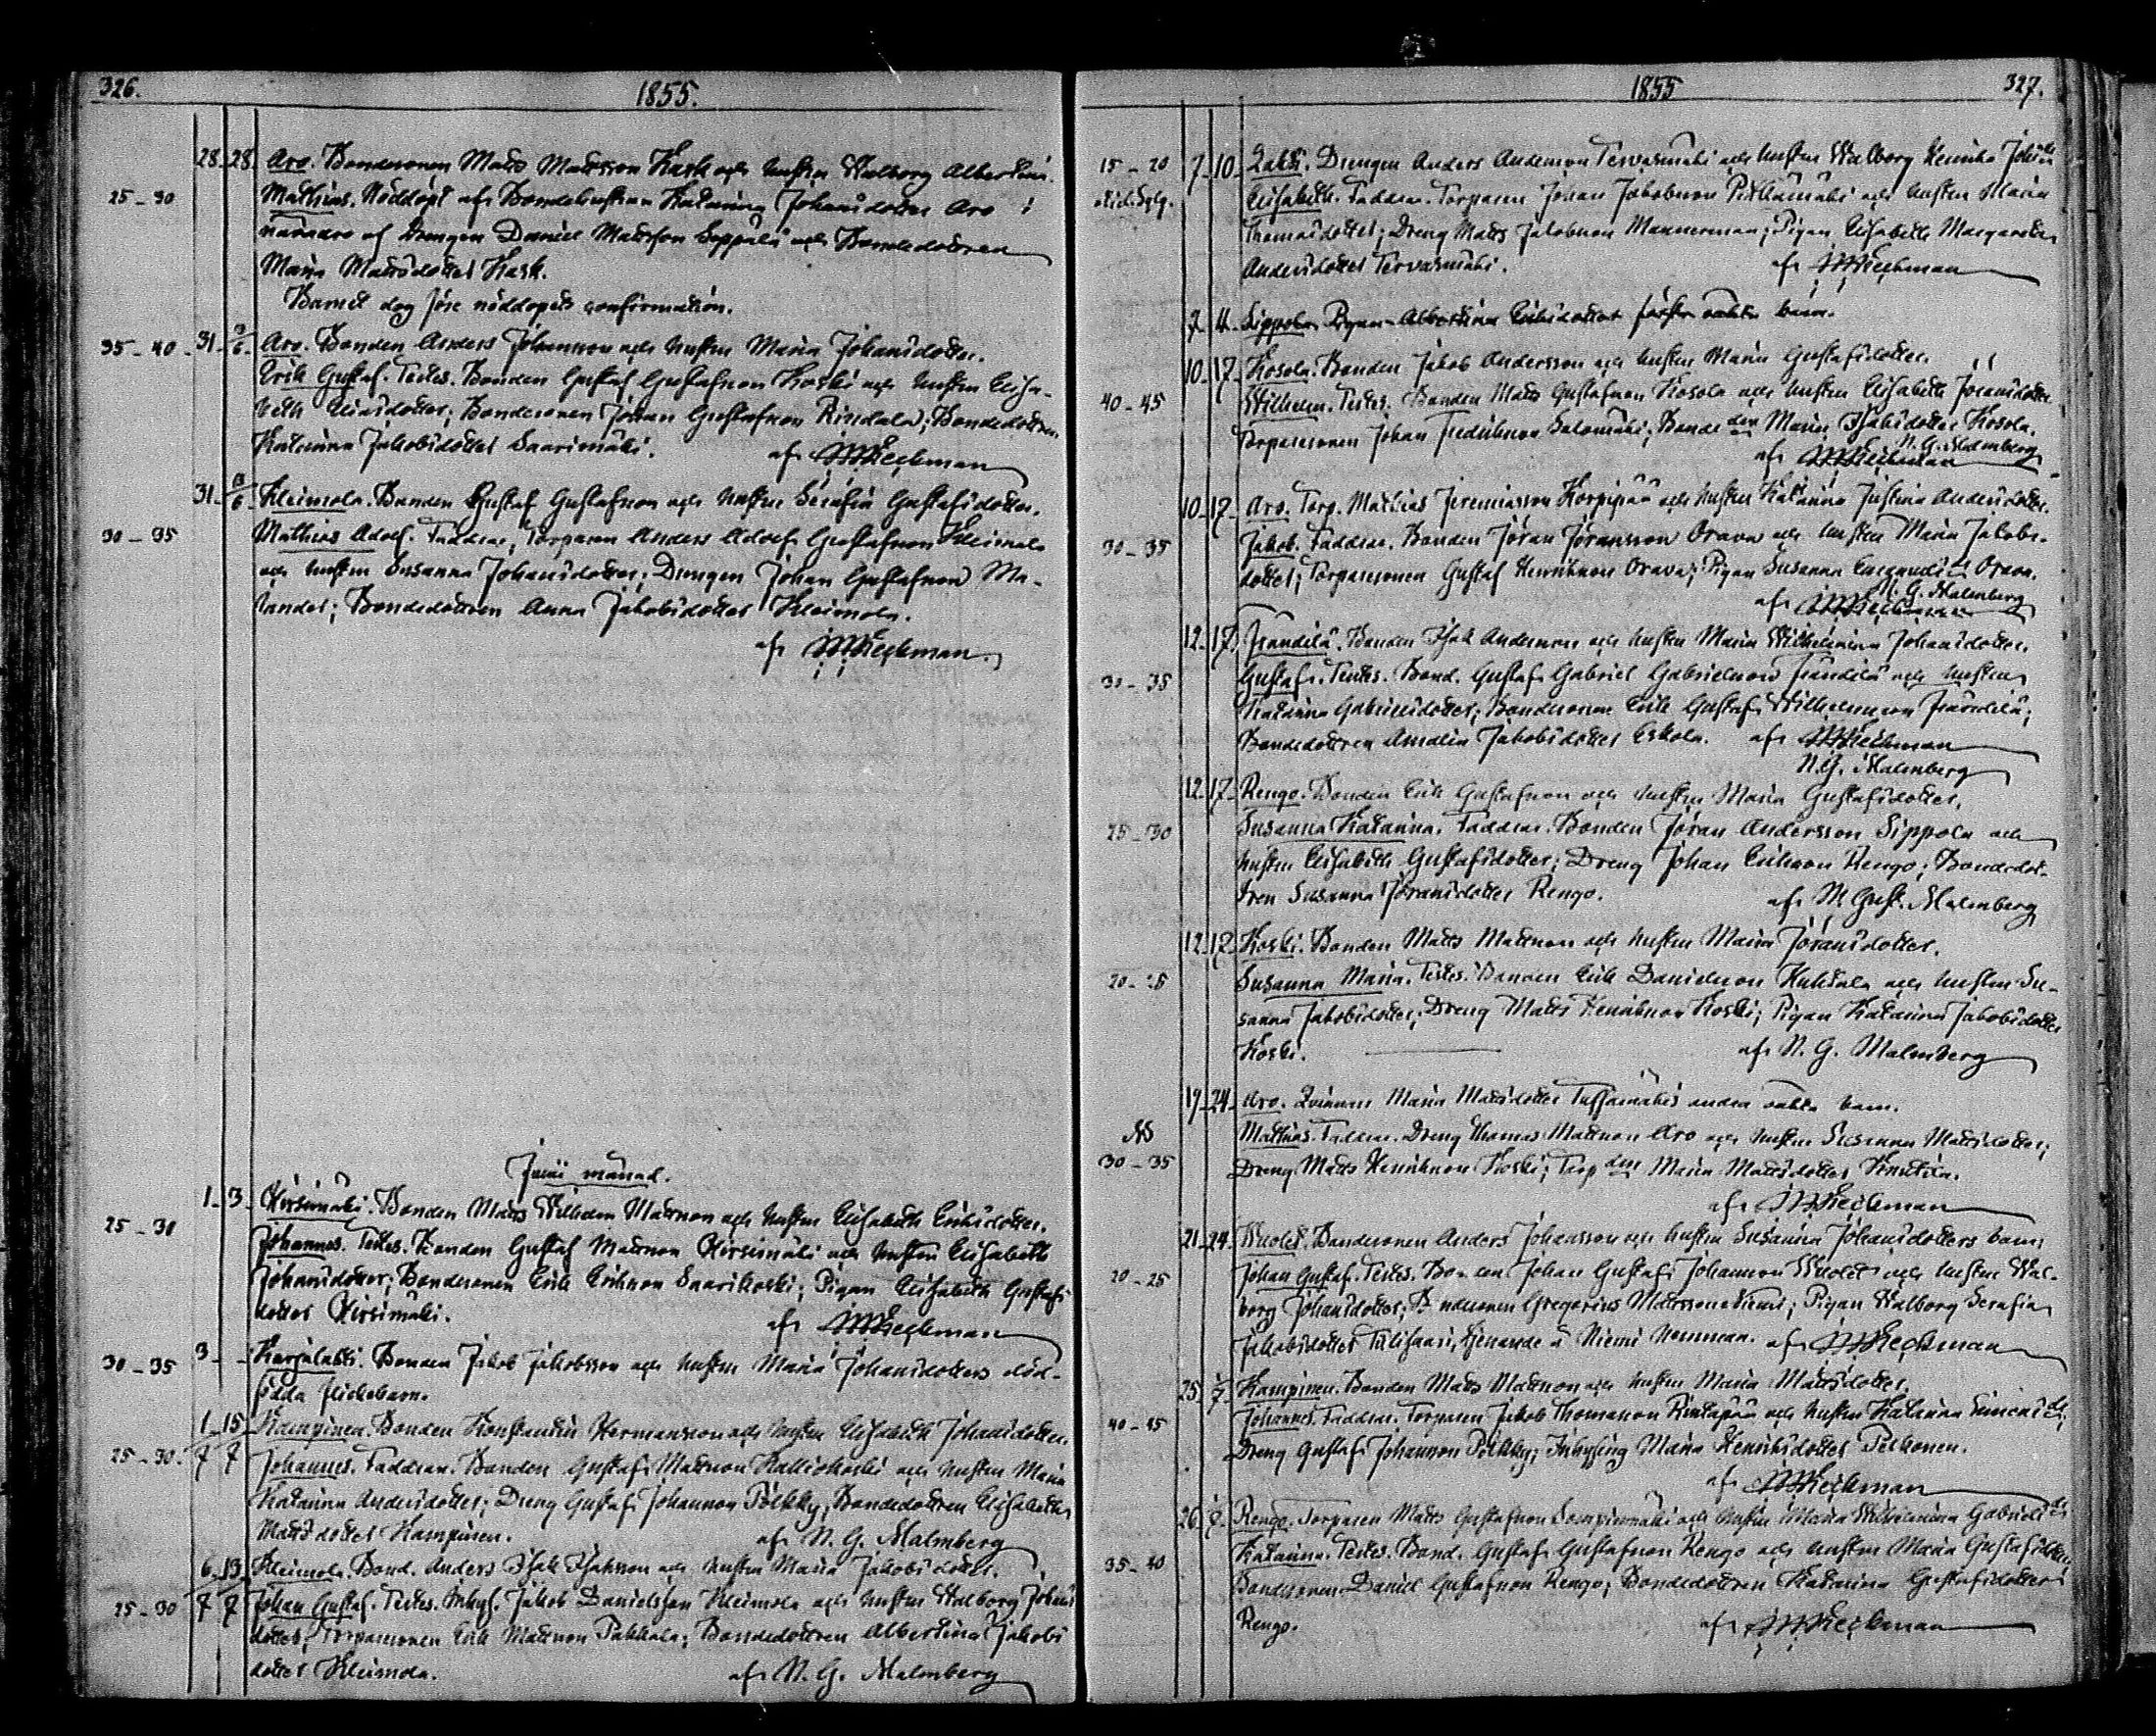 326.
1855.
28. 28. Aro. Bondesonen Matts Mattsson Kask och hustru Walborg Albertina.
25–30 Mathias. Nöddöpt af Bondehustrun Katarina Johansdotter Aro i
närvaro af Drengen Daniel Mattsson Seppälä och Bondedottren
Maria Mattsdotter Kask.
Barnet dog före nöddopets confirmation.
35–40 31 3/6 Aro. Bonden Anders Johansson och hustru Maria Johansdotter.
Erik Gustaf. Testes. Bonden Gustaf Gustafsson Koski och hustru Elisa-
beth Eliasdotter; Bondesonen Johan Gustafsson; Bondedottren
Katarina Jakobsdotter Saarimäki. af
31 6 Kleimola. Bonden Gustaf Gustafsson och hustru Serafia Gustafsdotter.
30–35 Mathias Adolf. Faddrar. Torparen Anders Adolf Gustafsson Kleimola
och hustru Susanna Johansdotter; Drengen Johan Gustafsson Ma-
; Bondedottren Anna Jakobsdotter Kleimola.
af
Junii månad.
1 3 Hirsimäki. Bonden Matts Wilhelm Mattsson och hustru Elisabeth Eriksdotter.
25–30 Johannes. Testes. Bonden Gustaf Mattsson Hirsimäki och hustru Elisabeth
Johansdotter; Bondesonen Erik Eriksson Saarikoski; Pigan Elisabeth Gustafs
dotter Hirsimäki. af
30–35 3 – Karjalahti. Bonden Jakob Jakobsson och hustru Maria Johansdotters död-
födda flickebarn.
1 15 Kampinen. Bonden Konstantin Hermansson och hustru Elisabeth Johansdotter.
25–30. 7 7 Johannes. Faddrar. Bonden Gustaf Mattsson Kalliokoski och hustru Maria
Katarina Andersdotter; Dreng Gustaf Johansson Pölkky; Bondedottren Elisabeth
Mattsdotter Kampinen. af N. G. Malmberg
6 13 Kleimola. Bond. Anders Isak Isaksson och hustru Maria Jakobsdotter.
25–30 7 7 Johan Gustaf. Testes. Inhys. Jakob Danielsson Kleimola och hustru Walborg Johans
dotter; Torparesonen Erik Mattsson Pakkala; Bondedottren Albertina Jakobs
dotter Kleimola. af N. G. Malmberg
1855
327.
15–20 7 10 Lahti. Drengen Anders Andersson Tervasmäki och hustru Walborg Henrika
Elisabeth. Faddrar. Torparen Johan Jakobsson och hustru Maria
Thomasdotter; Dreng Matts Jakobsson Mannerman; Pigan Elisabeth Margareta
Andersdotter Tervasmäki. af
7 Sippola Pigan Albertina Eriksdotter första oäkta barn.
10 17 Kosola. Bonden Jakob Andersson och hustru Maria Gustafsdotter.
40–45 Wilhelm. Testes. Bonden Matts Gustafsson Kosola och hustru Elisabeth Jöransdotter
Torparesonen Johan Fredriksson Salomäki; Bonde den Maria Isaksdotter Kosola.
af N. G. Malmberg
10 17 Aro. Torp. Mathias Jeremiasson Korpipää och hustru Katarina Justina Andersdotter.
30–35 Jakob. Faddrar. Bonden Jöran Jöransson Orava och hustru Maria Jakobs-
dotter; Torparesonen Gustaf Henriksson Orava; Pigan Susanna Orava.
af N. G. Malmberg
12 17 Frändilä. Bonden Isak Andersson och hustru Maria Wilhelmina Johansdotter.
30–35 Gustaf. Testes. Bond. Gustaf Gabriel Gabrielsson Frändilä och hustru
Katarina Gabrielsdotter; Bondesonen Erik Gustaf Wilhelmsson Frändilä;
Bondedottren Amalia Jakobsdotter Eskola. af
N. G. Malmberg
12 17 Rengo. Bonden Erik Gustafsson och hustru Maria Gustafsdotter.
25–30 Susanna Katarina. Faddrar. Bonden Jöran Andersson Sippola och
hustru Elisabeth Gustafsdotter; Dreng Johan Eriksson Rengo; Bondedot-
tren Susanna Jöransdotter Rengo. af N. Gust. Malmberg
12 17 Koski. Bonden Matts Mattsson och hustru Maria Jöransdotter.
20–25 Susanna Maria. Testes. Bonden Erik Danielsson Huhtala och hustru Su-
sanna Jakobsdotter; Dreng Matts Henriksson Koski; Pigan Katarina Jakobsdotter
Koski. af N. G. Malmberg
19 24 Aro. Qvinnan Maria Mattsdotter andra oäkta barn.
30–35 Mathias. Faddrar. Dreng Thomas Mattsson Aro och hustru Susanna Mattsdotter;
Dreng Matts Henriksson Koski; Torp den Maria Mattsdotter Knutila.
af
21 24 Wuolet. Bondesonen Anders Johansson och hustru Susanna Johansdotters barn
20–25 Johan Gustaf. Testes. Bonden Johan Gustaf Johansson Wuolet och hustru Wal-
borg Johansdotter; Bondesonen Gregorius Mattsson Niemi; Pigan Walborg Serafia
Jakobsdotter, tjenande å Niemi hemman. af
25 7 Kampinen. Bonden Matts Mattsson och hustru Maria Mattsdotter.
40–45 Johannes. Faddrar. Torparen Jakob Thomasson Rintapää och hustru Katarina
Dreng Gustaf Johansson Pölkky; Inhysing Maria Henriksdotter Pelkonen.
af
26 Rengo. Torparen Matts Gustafsson och hustru Maria Wilhelmina Gabriels
35–40 Katarina. Testes. Bond. Gustaf Gustafsson Rengo och hustru Maria Gustafsdotter
Bondesonen Daniel Gustafsson Rengo; Bondedottren Katarina Gustafsdotter
Rengo. af